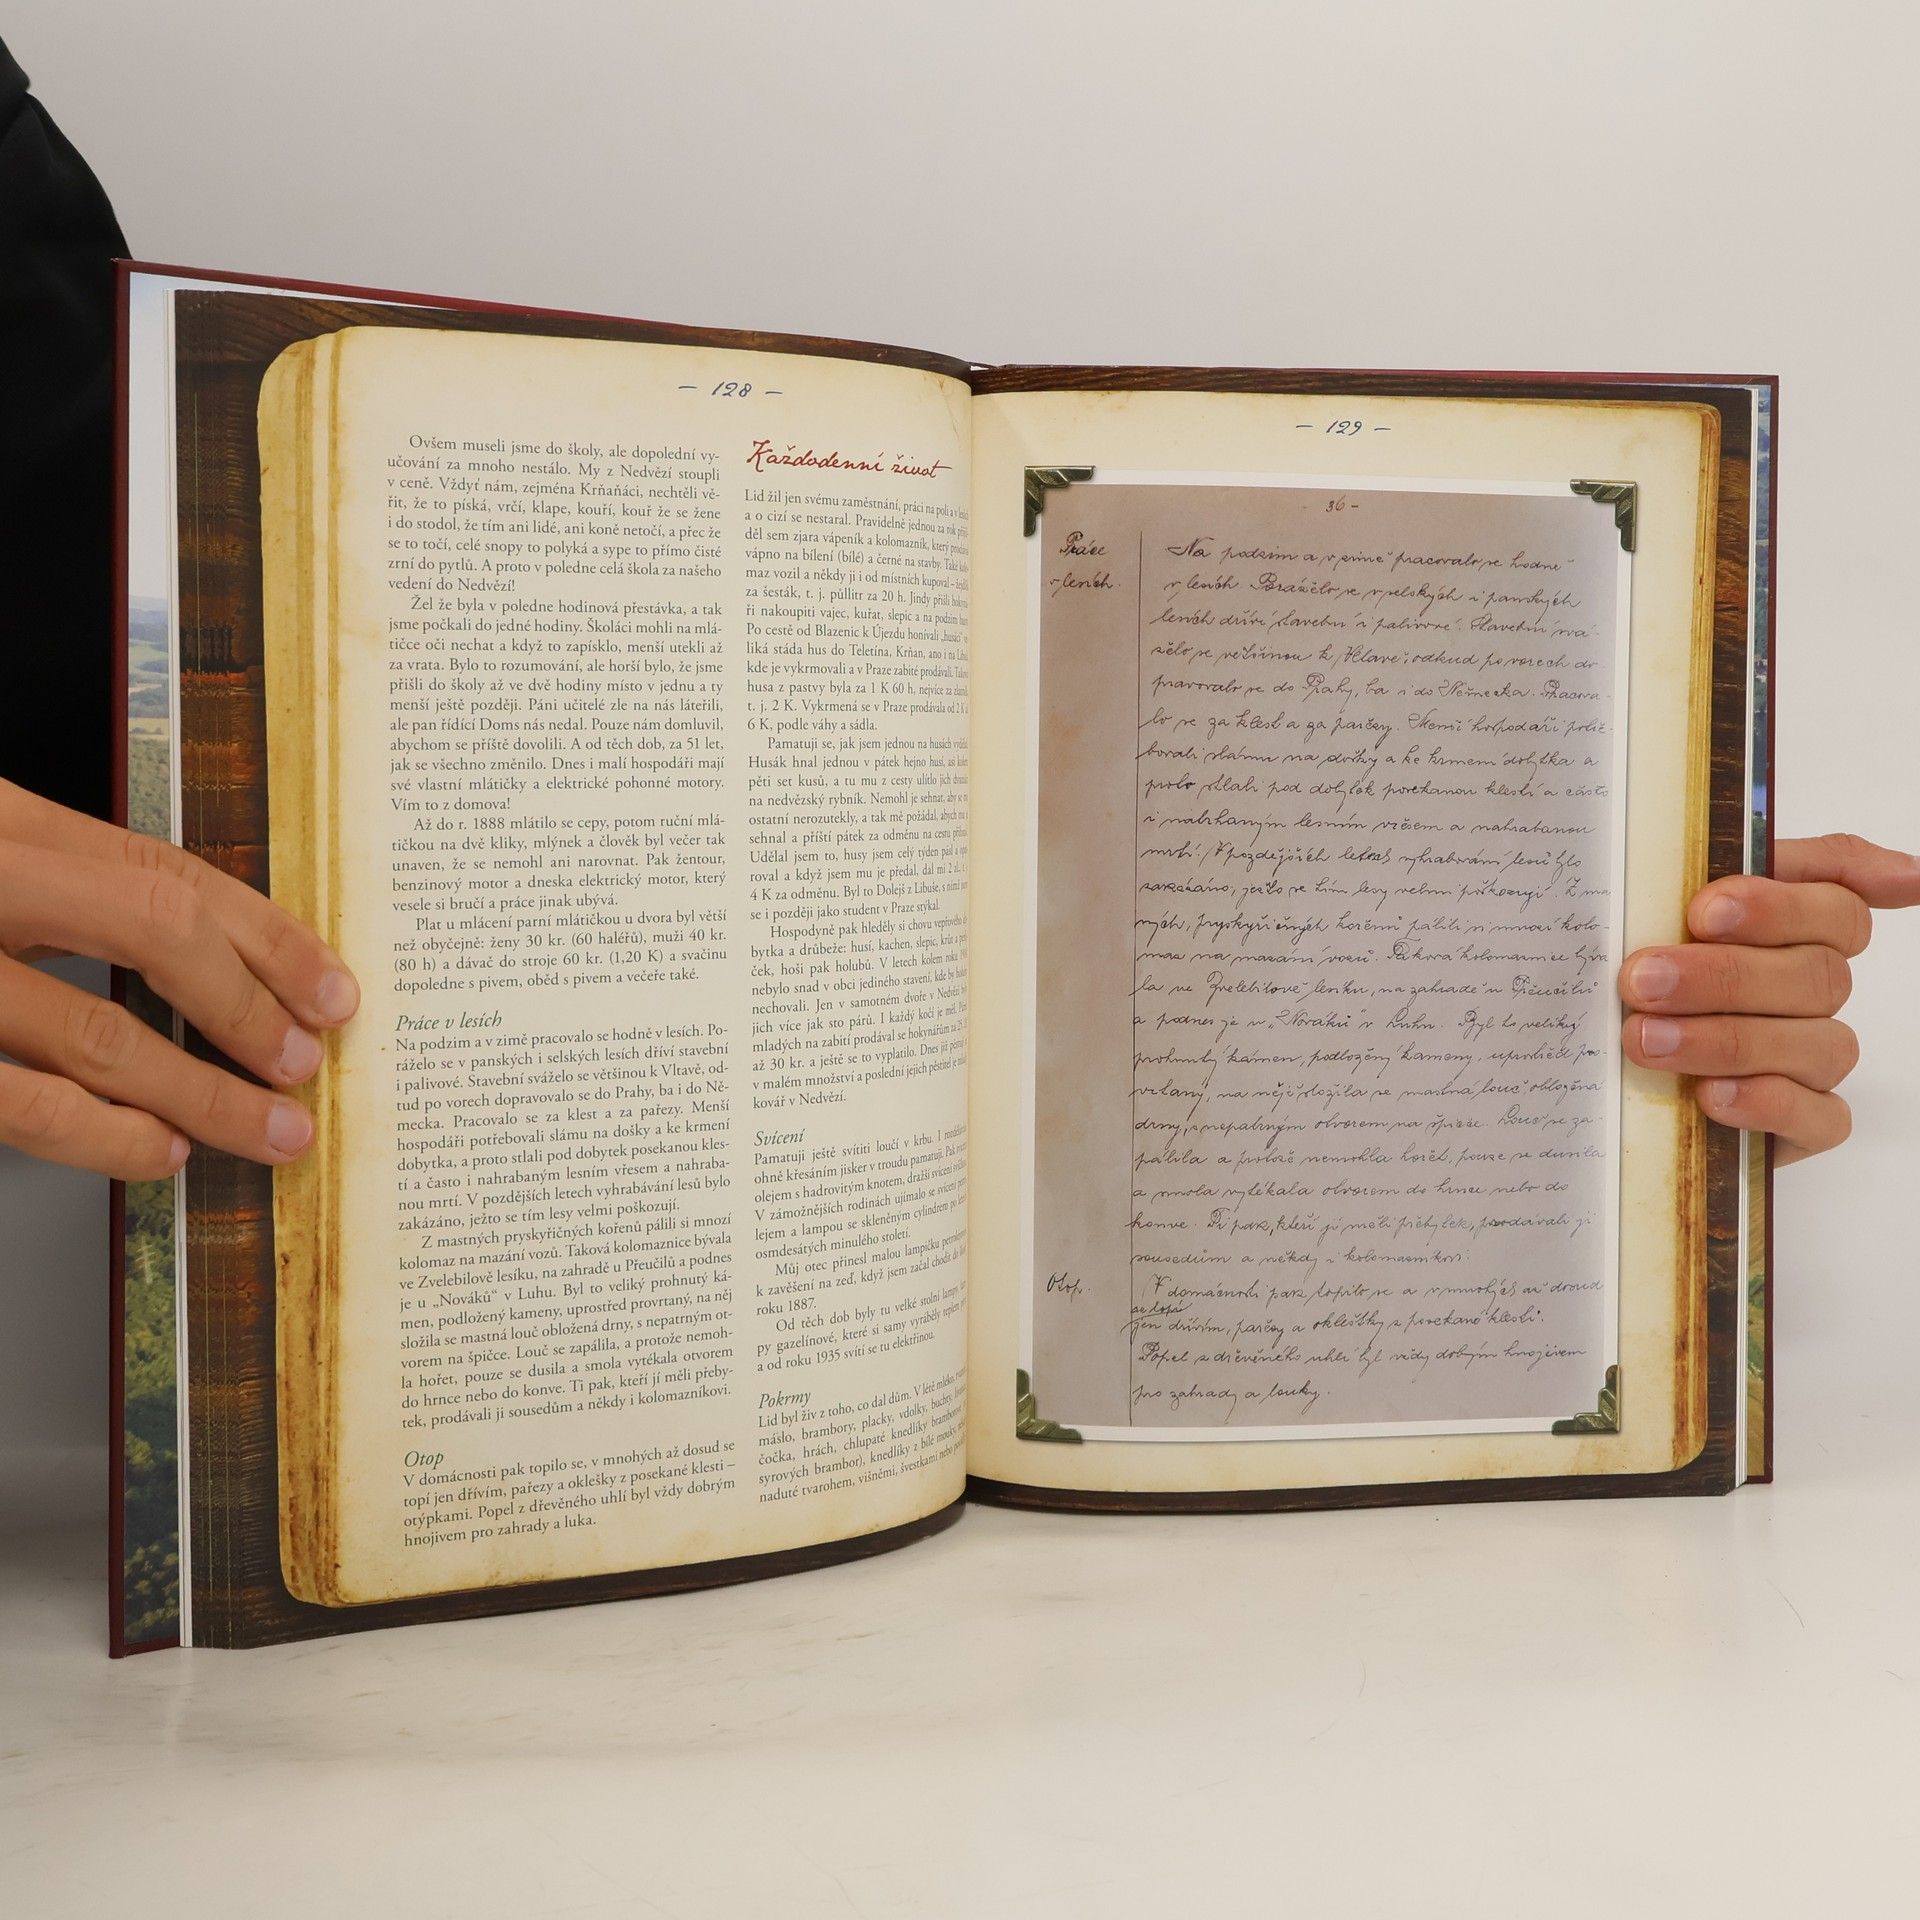 – 128 –
Ovšem museli jsme do školy, ale dopolední vy-
učování za mnoho nestálo. My z Nedvězí stoupli
v ceně. Vždyť nám, zejména Krňaňáci, nechtěli vě-
řit, že to píská, vrčí, klape, kouří, kouř že se žene
i do stodol, že tím ani lidé, ani koně netočí, a přec že
se to točí, celé snopy to polyká a sype to přímo čisté
zrní do pytlů. A proto v poledne celá škola za našeho
vedení do Nedvězí!
Žel že byla v poledne hodinová přestávka, a tak
jsme počkali do jedné hodiny. Školáci mohli na mlá-
tičce oči nechat a když to zapísklo, menší utekli až
za vrata. Bylo to rozumování, ale horší bylo, že jsme
přišli do školy až ve dvě hodiny místo v jednu a ty
menší ještě později. Páni učitelé zle na nás láteřili,
ale pan řídící Doms nás nedal. Pouze nám domluvil,
abychom se příště dovolili. A od těch dob, za 51 let,
jak se všechno změnilo. Dnes i malí hospodáři mají
své vlastní mlátičky a elektrické pohonné motory.
Vím to z domova!
Až do r. 1888 mlátilo se cepy, potom ruční mlá-
tičkou na dvě kliky, mlýnek a člověk byl večer tak
unaven, že se nemohl ani narovnat. Pak žentour,
benzinový motor a dneska elektrický motor, který
vesele si bručí a práce jinak ubývá.
Plat u mlácení parní mlátičkou u dvora byl větší
než obyčejně: ženy 30 kr. (60 haléřů), muži 40 kr.
(80 h) a dávač do stroje 60 kr. (1,20 K) a svačinu
dopoledne s pivem, oběd s pivem a večeře také.
Práce v lesích
Na podzim a v zimě pracovalo se hodně v lesích. Po-
ráželo se v panských i selských lesích dříví stavební
i palivové. Stavební sváželo se většinou k Vltavě, od-
tud po vorech dopravovalo se do Prahy, ba i do Ně-
mecka. Pracovalo se za klest a za pařezy. Menší
hospodáři potřebovali slámu na došky a ke krmení
dobytka, a proto stlali pod dobytek posekanou kles-
tí a často i nahrabaným lesním vřesem a nahraba-
nou mrtí. V pozdějších letech vyhrabávání lesů bylo
zakázáno, ježto se tím lesy velmi poškozují.
Z mastných pryskyřičných kořenů pálili si mnozí
kolomaz na mazání vozů. Taková kolomaznice bývala
ve Zvelebilově lesíku, na zahradě u Přeučilů a podnes
je u „Nováků“ v Luhu. Byl to veliký prohnutý ká-
men, podložený kameny, uprostřed provrtaný, na něj
složila se mastná louč obložená drny, s nepatrným ot-
vorem na špičce. Louč se zapálila, a protože nemoh-
la hořet, pouze se dusila a smola vytékala otvorem
do hrnce nebo do konve. Ti pak, kteří jí měli přeby-
tek, prodávali jí sousedům a někdy i kolomazníkovi.
Otop
V domácnosti pak topilo se, v mnohých až dosud se
topí jen dřívím, pařezy a oklešky z posekané klesti –
otýpkami. Popel z dřevěného uhlí byl vždy dobrým
hnojivem pro zahrady a luka.
Každodenní život
Lid žil jen svému zaměstnání, práci na poli a v
a o cizí se nestaral. Pravidelně jednou za rok
děl sem zjara vápeník a kolomazník, který
vápno na bílení (bílé) a černé na stavby. Také
maz vozil a někdy ji i od místních kupoval –
za šesták, t. j. půllitr za 20 h. Jindy přišli
ři nakoupiti vajec, kuřat, slepic a na podzim
Po cestě od Blazenic k Újezdu honívali „husáci“
liká stáda hus do Teletína, Krňan, ano i na
kde je vykrmovali a v Praze zabité prodávali.
husa z pastvy byla za 1 K 60 h, nejvíce za
t. j. 2 K. Vykrmená se v Praze prodávala od 2 K
6 K, podle váhy a sádla.
Pamatuji se, jak jsem jednou na husách
Husák hnal jednou v pátek hejno husí, asi
pěti set kusů, a tu mu z cesty ulítlo jich
na nedvězský rybník. Nemohl je sehnat, aby se
ostatní nerozutekly, a tak mě požádal, abych
sehnal a příští pátek za odměnu na cestu
Udělal jsem to, husy jsem celý týden pásl a
roval a když jsem mu je předal, dal mi 2 zl., t. j.
4 K za odměnu. Byl to Dolejš z Libuše, s nímž jsem
se i později jako student v Praze stýkal.
Hospodyně pak hleděly si chovu vepřového
bytka a drůbeže: husí, kachen, slepic, krůt a
ček, hoši pak holubů. V letech kolem roku
nebylo snad v obci jediného stavení, kde by
nechovali. Jen v samotném dvoře v Nedvězí
jich více jak sto párů. I každý kočí je měl.
mladých na zabití prodával se hokynářům za 25
až 30 kr. a ještě se to vyplatilo. Dnes již
v malém množství a poslední jejich pěstitel je
kovář v Nedvězí.
Svícení
Pamatuji ještě svítiti loučí v krbu. I
ohně křesáním jisker v troudu pamatuji. Pak
olejem s hadrovitým knotem, dražší svícení
V zámožnějších rodinách ujímalo se svícení
lejem a lampou se skleněným cylindrem po
osmdesátých minulého století.
Můj otec přinesl malou lampičku
k zavěšení na zeď, když jsem začal chodit do
roku 1887.
Od těch dob byly tu velké stolní lampy,
py gazelínové, které si samy vyráběly teplem
a od roku 1935 svítí se tu elektřinou.
Pokrmy
Lid byl živ z toho, co dal dům. V létě mléko,
máslo, brambory, placky, vdolky, buchty,
čočka, hrách, chlupaté knedlíky
syrových brambor), knedlíky z bílé mouky,
naduté tvarohem, višněmi, švestkami nebo
– 129 –
36 –
Práce
v lesích.
Na podzim a v zimě pracovalo se hodně
v lesích. Poráželo se v selských i panských
lesích dříví stavební i palivové. Stavební svá-
želo se většinou k Vltavě, odkud po vorech do-
pravovalo se do Prahy, ba i do Německa. Pracova-
lo se za klest a za pařezy. Menší hospodáři potře-
bovali slámu na došky a ke krmení dobytka a
proto stlali pod dobytek posekanou klestí a často
i nabrhaným lesním vřesem a nahrabanou
mrtí. V pozdějších letech vyhrabování lesů bylo
zakázáno, ježto se tím lesy velmi poškozují. Z mast-
ných, pryskyřičných kořenů pálili si mnozí kolo-
maz na mazání vozů. Taková kolomaznice býva-
la ve Zvelebilově lesíku, na zahradě u Přeučilů
a podnes je u „Nováků“ v Luhu. Byl to veliký
prohnutý kámen, podložený kameny, uprostřed pro-
vrtaný, na nějž složila se mastná louč obložená
drny, s nepatrným otvorem na špičce. Louč se za-
pálila a protože nemohla hořet, pouze se dusila
a smola vytékala otvorem do hrnce nebo do
konve. Ti pak, kteří jí měli přebytek, prodávali jí
sousedům a někdy i kolomazníkovi.
Otop.
V domácnosti pak topilo se a v mnohých až dosud
se topí
jen dřívím, pařezy a oklešťky z posekané klesti.
Popel z dřevěného uhlí byl vždy dobrým hnojivem
pro zahrady a louky.